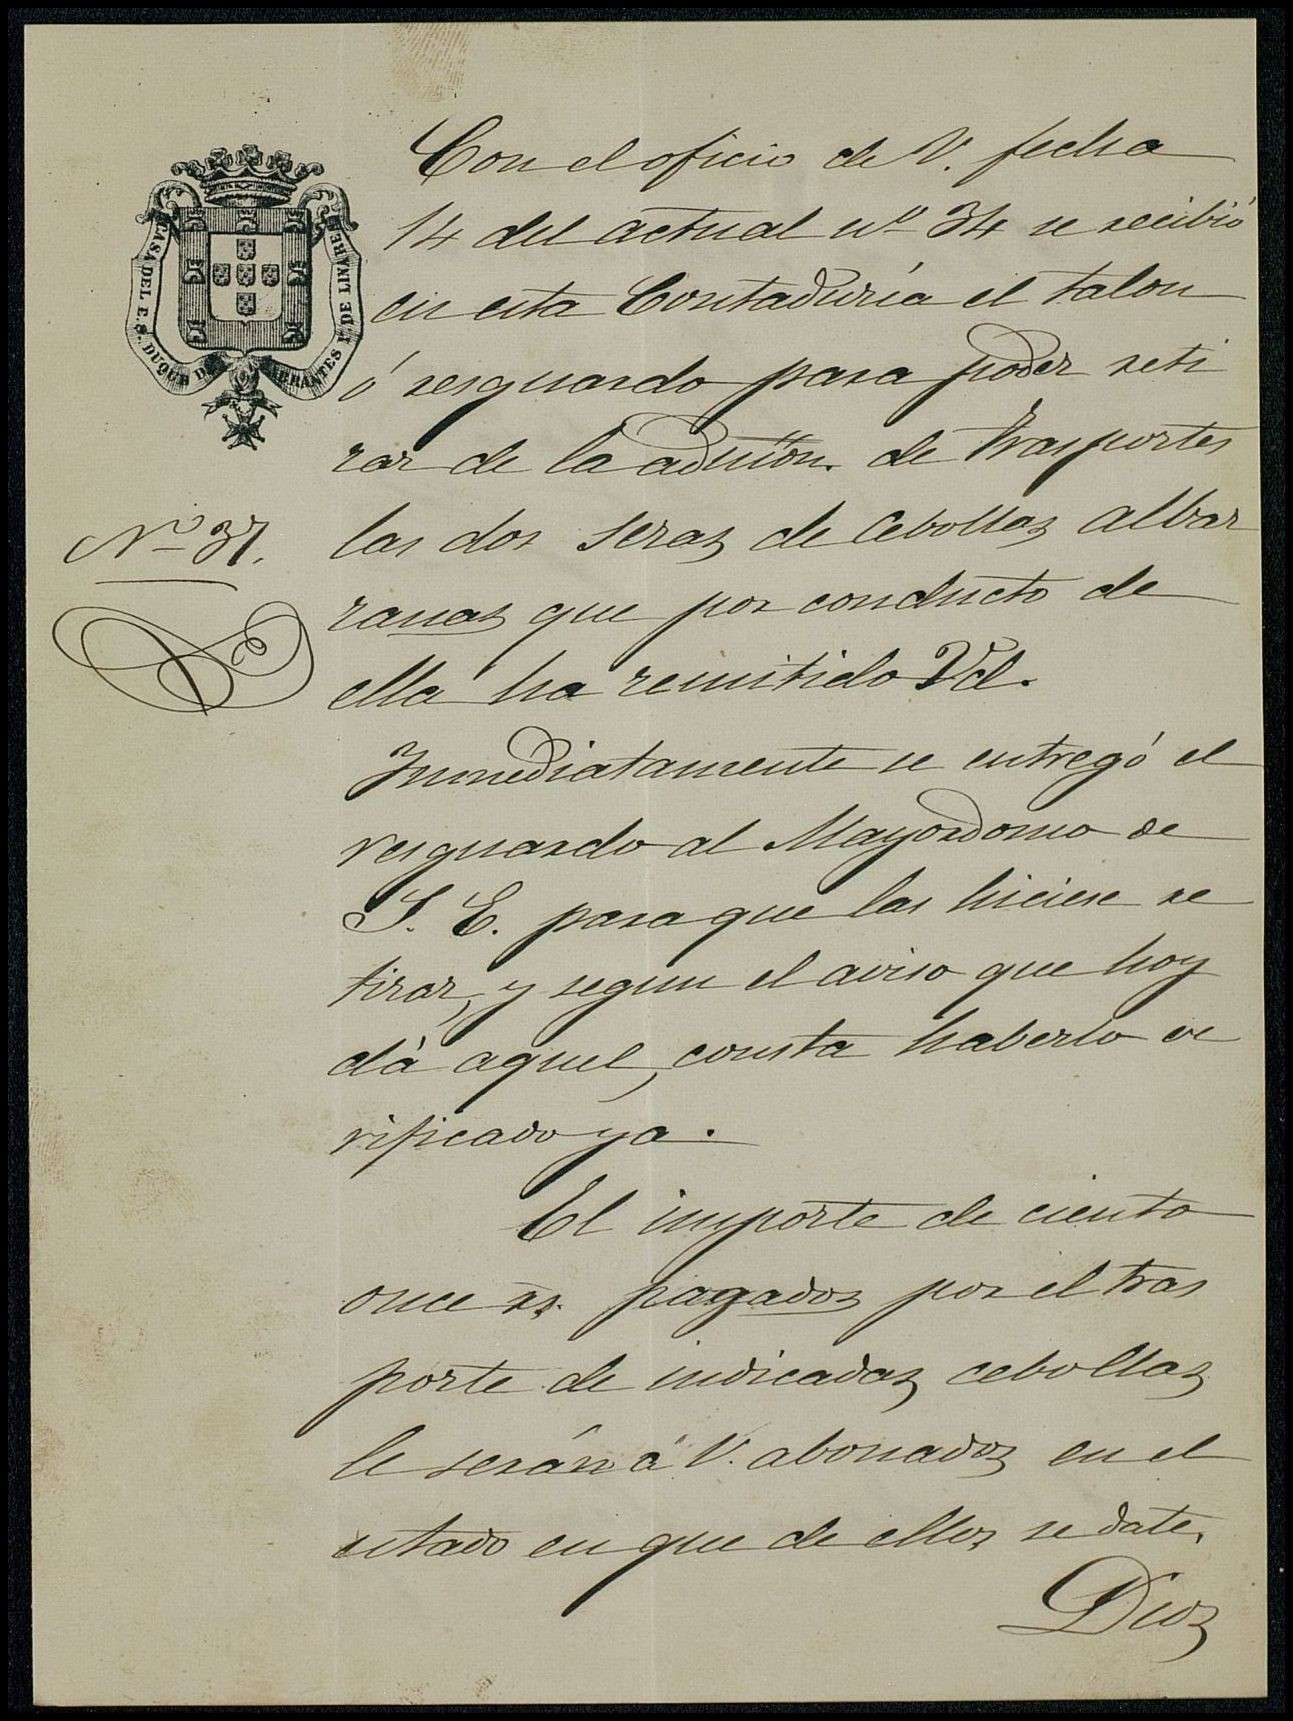 CASA DEL E. S. DUQUE DE ABRANTES Y DE LINARES
Nº 37.
Con el oficio de V. fecha
14 del actual nº 34 se recibió
en esta Contaduría el talon
ó resguardo para poder reti
rar de la admiton. de Trasportes
las dos seras de cebollas albar
ranas que por conducto de
ella ha remitido Vd.
Inmediatamente se entregó el
resguardo al Mayordomo de
S. E. para que las hiciese re
tirar, y segun el aviso que hoy
dá aquel, consta haberlo ve
rificado ya.
El importe de ciento
once rs. pagados por el tras
porte de indicadas cebollas
le serán á V. abonados en el
estado en que de ellos se date.
Dios